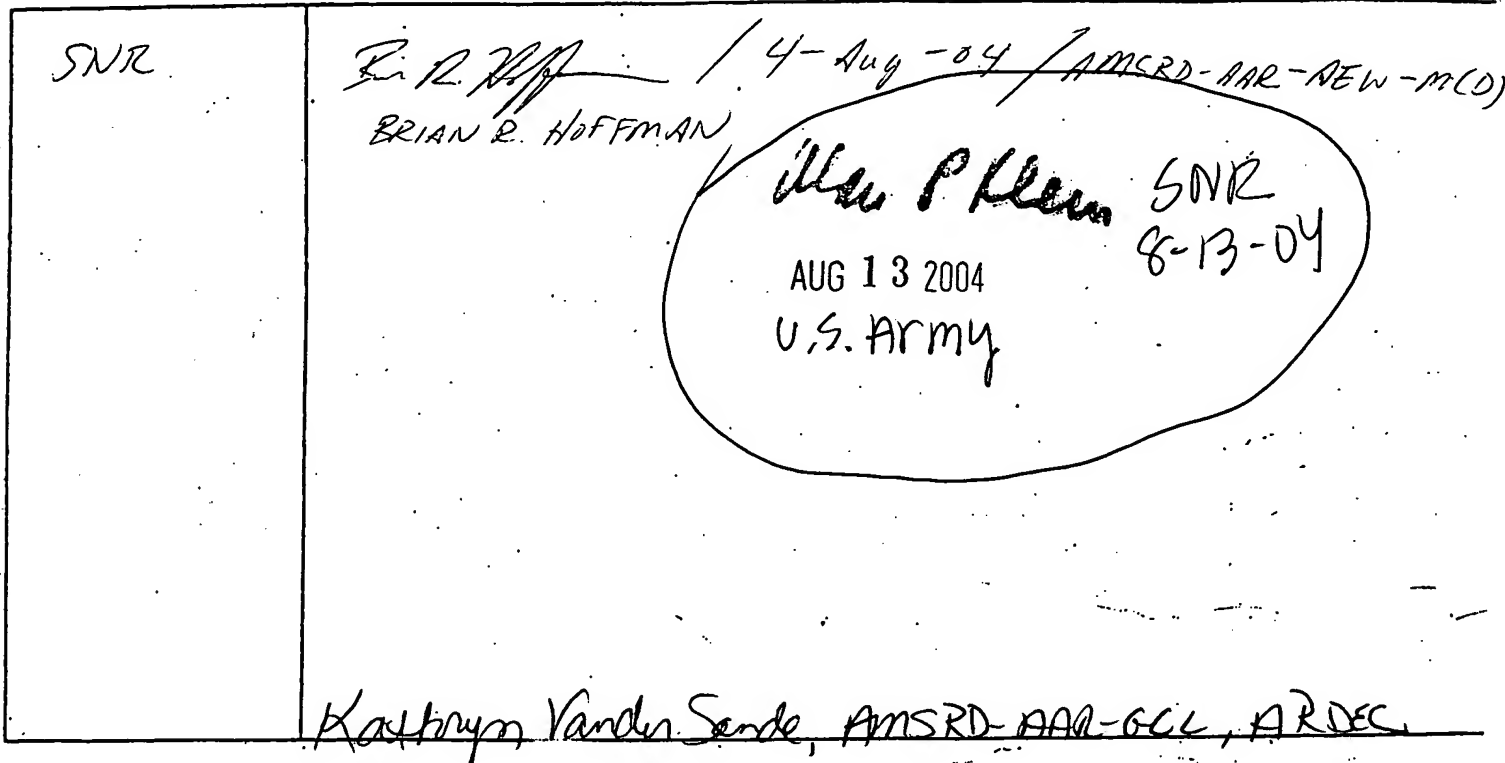 SNR
/ 4-Aug-04 / AMSRD-AAR-AEW-M(D)
BRIAN R. HOFFMAN
P Klein SNR
8-13-04
AUG 13 2004
U.S. Army
Kathryn Vander Sande, AMSRD-AAR-GCL, ARDEC